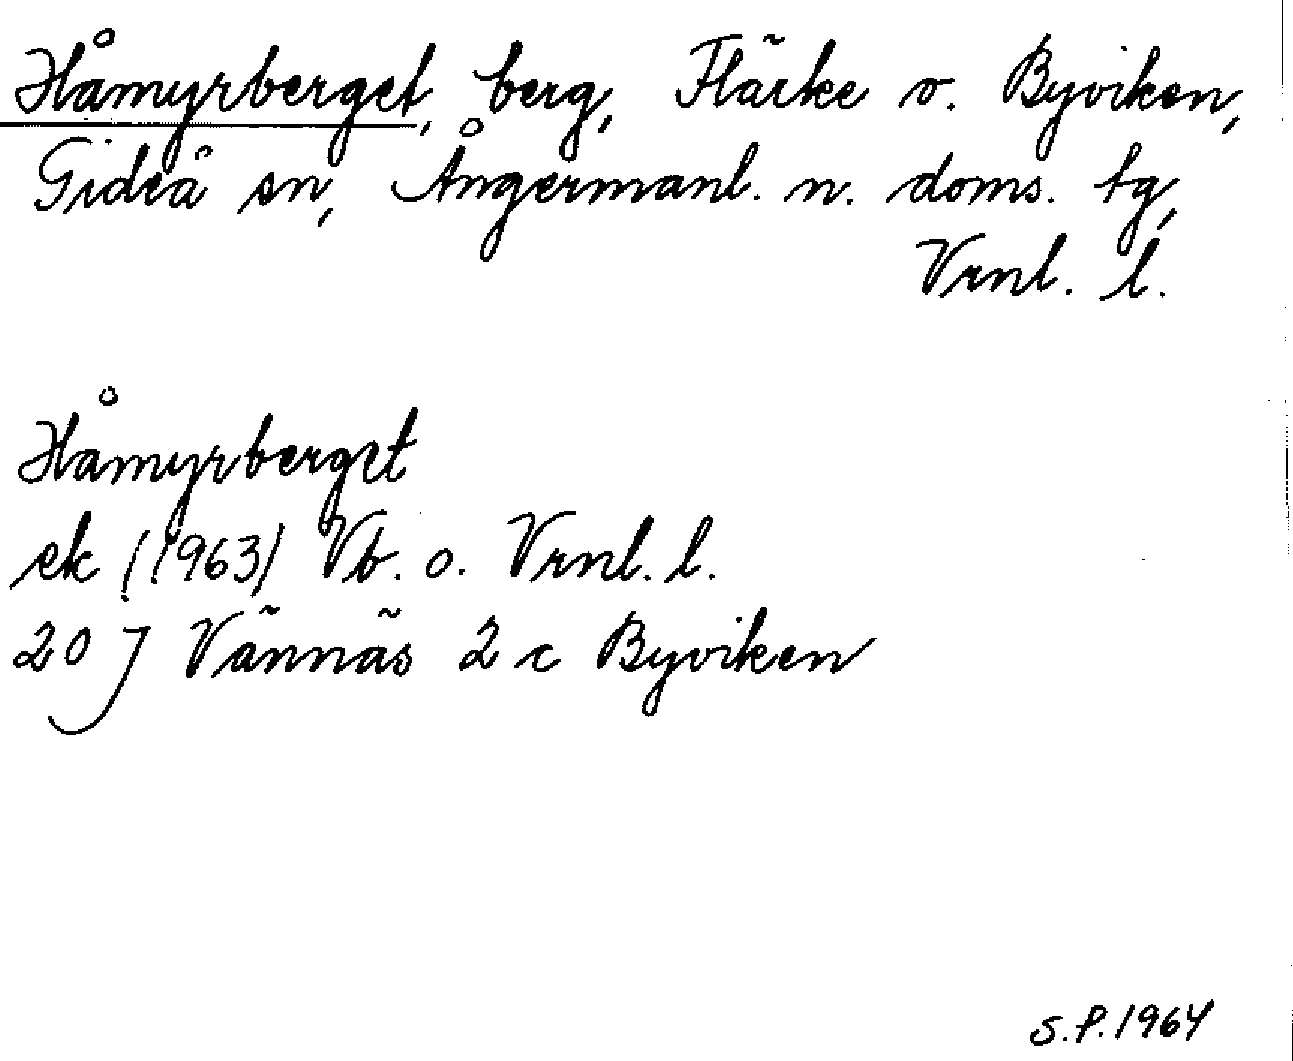 Håmyrberget, berg, Flärke o. Byviken,
Gideå sn, Ångermanl. n. doms. tg,
Vrnl. l.
Håmyrberget
ek (1963) Vb. o. Vrnl. l.
20 J Vännäs 2 c Byviken
S.P. 1964